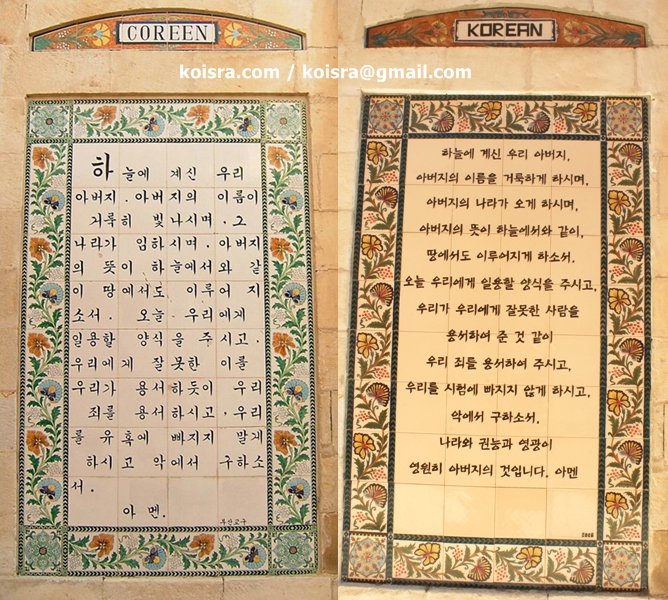 COREEN
KOREAN
koisra.com / koisra@gmail.com
하늘에 계신 우리
아버지. 아버지의 이름이
거룩히 빛나시며. 그
나라가 임하시며. 아버지
의 뜻이 하늘에서와 같
이 땅에서도 이루어 지
소서. 오늘 우리에게
일용할 양식을 주시고.
우리에게 잘못한 이를
우리가 용서하듯이 우리
죄를 용서하시고. 우리
를 유혹에 빠지지 말게
하시고 악에서 구하소
서.
아멘.
부산교구
하늘에 계신 우리 아버지,
아버지의 이름을 거룩하게 하시며,
아버지의 나라가 오게 하시며,
아버지의 뜻이 하늘에서와 같이,
땅에서도 이루어지게 하소서.
오늘 우리에게 일용할 양식을 주시고,
우리가 우리에게 잘못한 사람을
용서하여 준 것 같이
우리 죄를 용서하여 주시고,
우리를 시험에 빠지지 않게 하시고,
악에서 구하소서.
나라와 권능과 영광이
영원히 아버지의 것입니다. 아멘